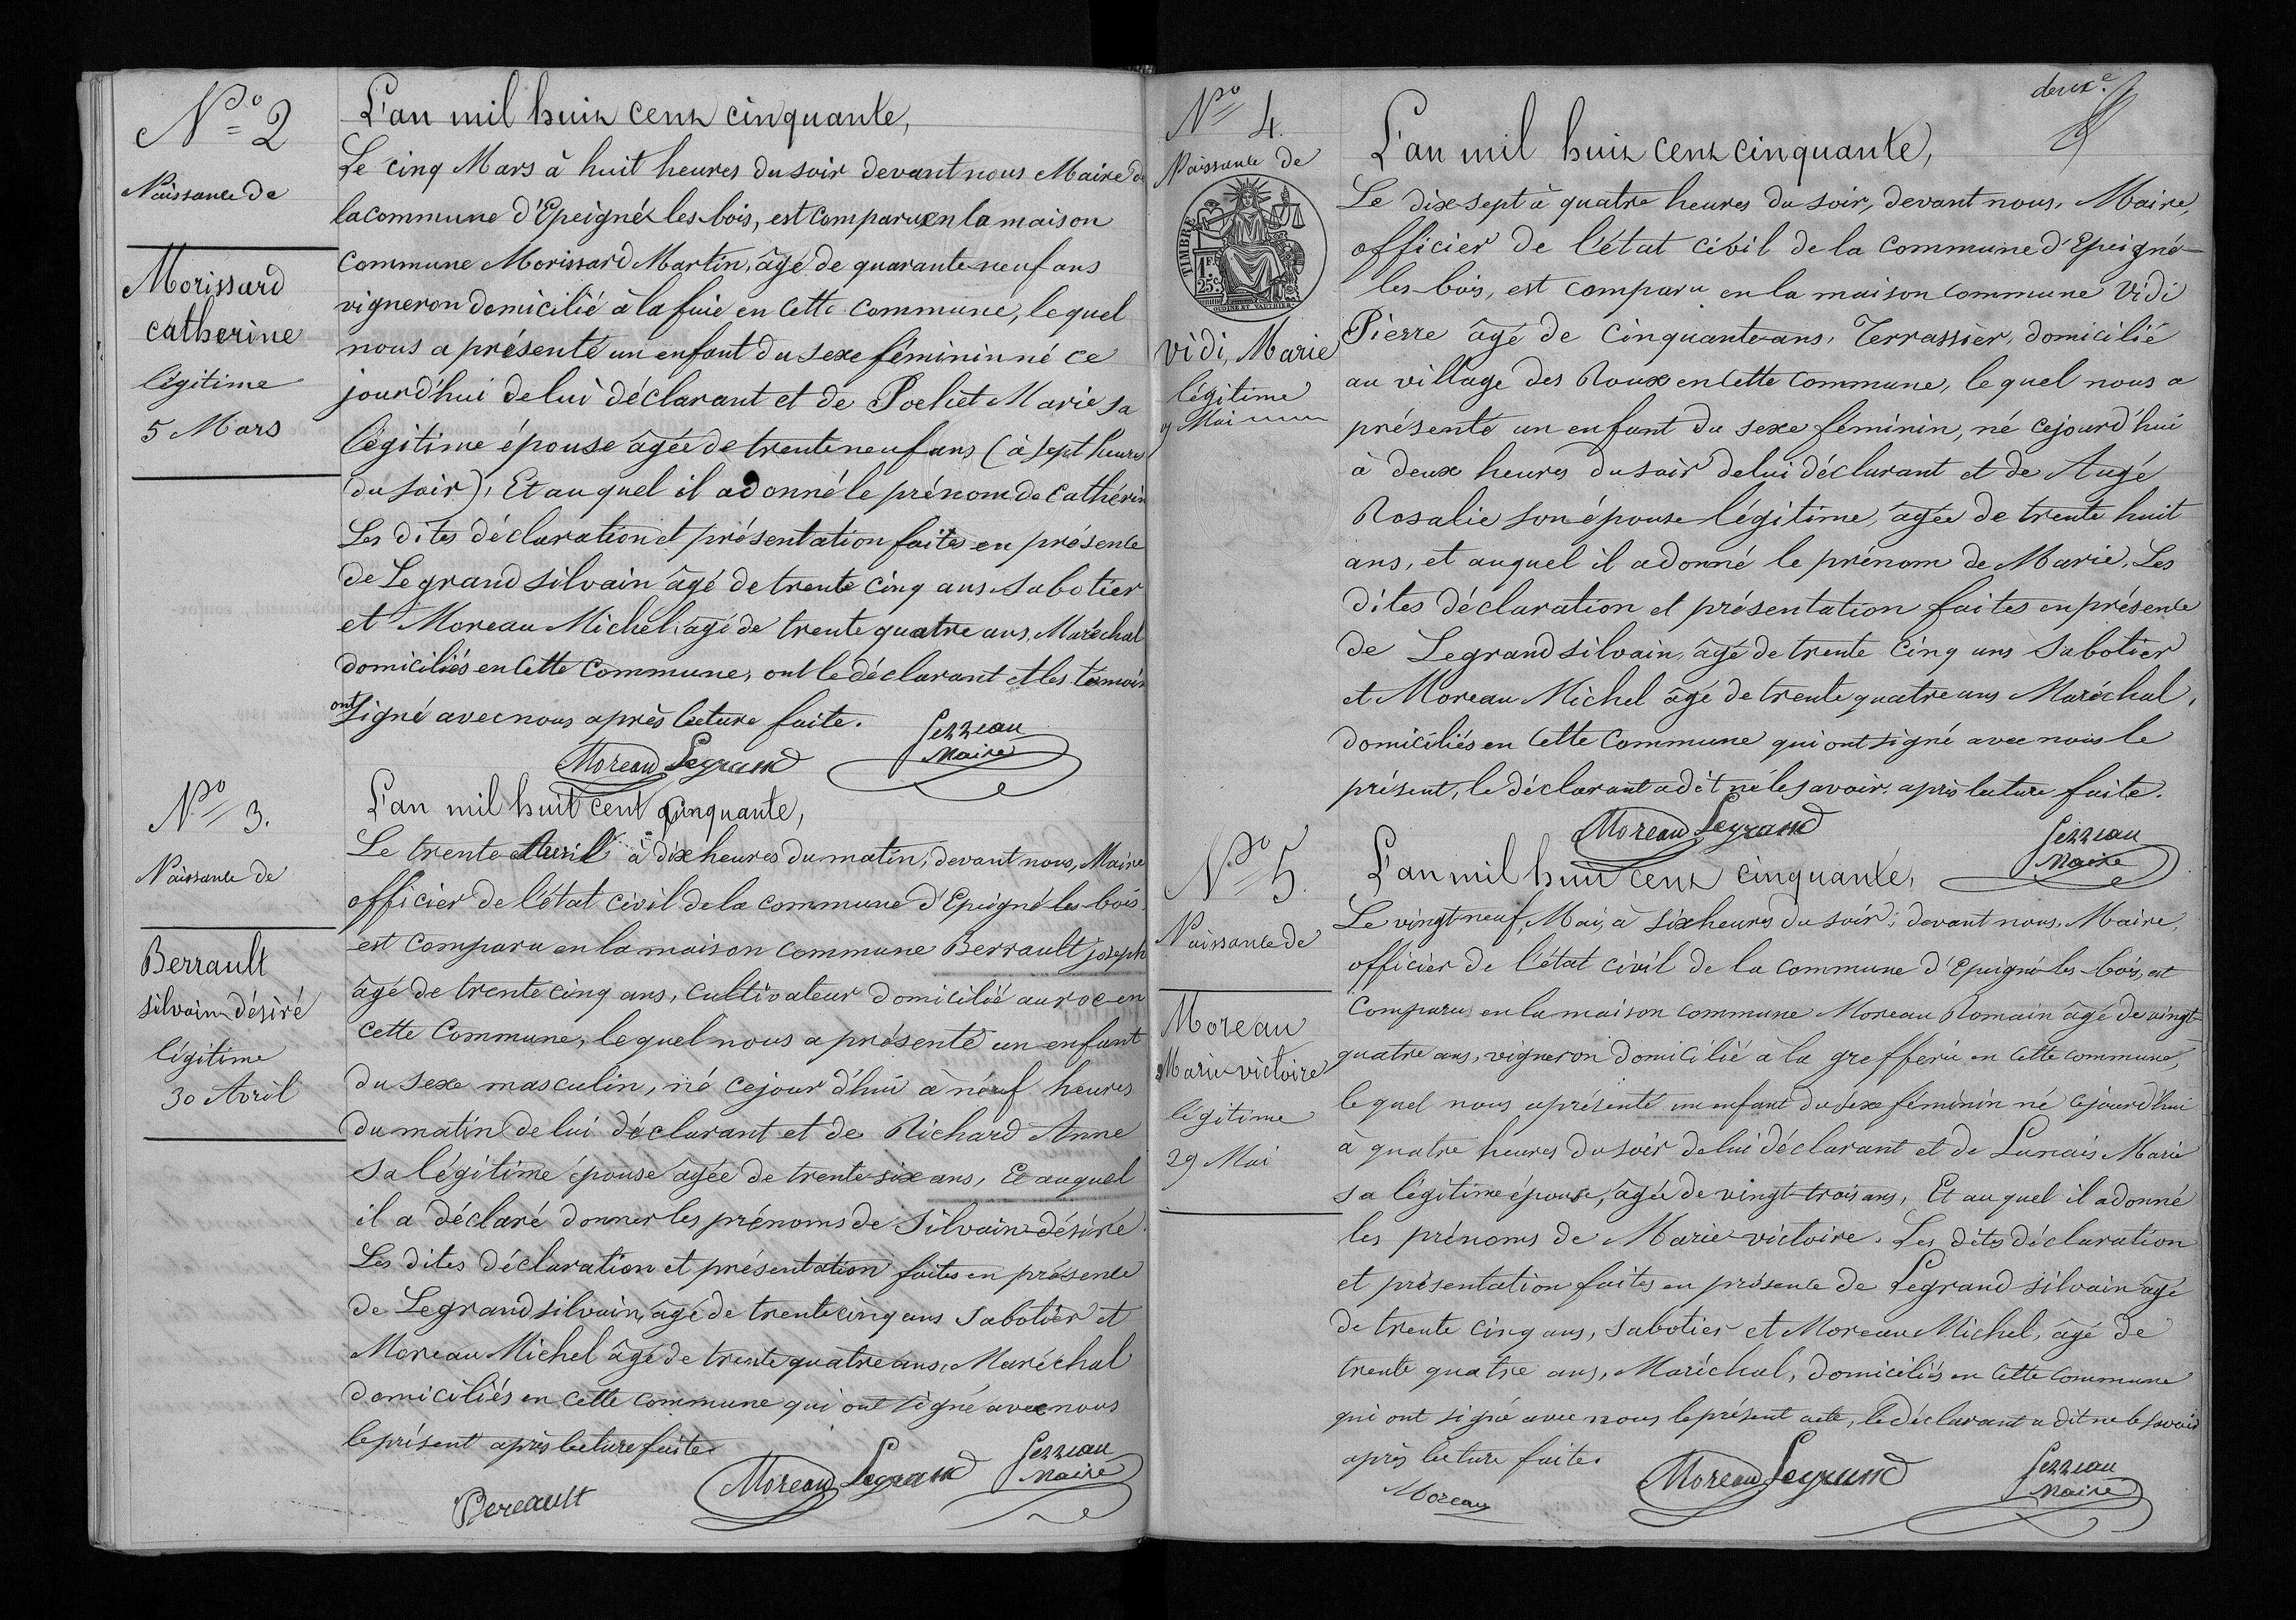 N.o 2
Naissance de
Morissard
catherine
légitime
5 Mars
L'an mil huit cent cinquante,
Le cinq Mars à huit heures du soir devant nous Maire de
la commune d'Epeigné les-bois, est comparu en la maison
commune Morissard Martin, âgé de quarante neuf ans
vigneron domicilié à la fuie en cette commune, lequel
nous a présenté un enfant du sexe féminin né ce
jourd'hui de lui déclarant et de Pochet Marie sa
légitime épouse âgée de trente neuf ans (à sept heures
du soir), Et auquel il a donné le prénom de Cathérin
Les dites déclaration et présentation faites en présence
de Legrand silvain âgé de trente cinq ans sabotier
et Moreau Michel, âgé de trente quatre ans, Maréchal
domiciliés en cette commune, ont le déclarant et les témoin
ont signé avec nous après lecture faite.
Moreau Legrand
Maire
N.o 3.
Naissance de
Berrault
silvain-désiré
légitime
30 Avril
L'an mil huit cent cinquante,
Le trente Avril à dix heures du matin, devant nous, Maire
officier de l'état civil de la commune d'Epeigné-les-bois,
est comparu en la maison commune Berrault joseph
âgé de trente cinq ans, cultivateur domicilié au roc en
cette commune, lequel nous a présenté un enfant
du sexe masculin, né cejourd'hui à neuf heures
du matin de lui déclarant et de Richard Anne
sa légitime épouse âgée de trente-six ans, Et auquel
il a déclaré donner les prénoms de silvain-désiré.
Les dites déclaration et présentation faites en présence
de Legrand silvain, âgé de trente cinq ans sabotier et
Moreau Michel âgé de trente quatre ans, Maréchal
domiciliés en cette commune qui ont signé avec nous
le présent après lecture faite.
Bereault
Moreau Legrand
Maire
deux.e
N.o 4.
Naissance de
TIMBRE
1F
25c
vidi, Marie
légitime
Mai
L'an mil huit cent cinquante,
Le dix-sept à quatre heures du soir, devant nous, Maire,
officier de l'état civil de la commune d'Epeigné-
les-bois, est comparu en la maison commune Vidi
Pierre âgé de cinquante ans, Terrassier, domicilié
au village des Roux en cette commune, lequel nous a
présenté un enfant du sexe féminin, né cejourd'hui
à deux heures du soir de lui déclarant et de Augé
Rosalie son épouse légitime, âgée de trente huit
ans, et auquel il a donné le prénom de Marie. Les
dites déclaration et présentation faites en présence
de Legrand silvain, âgé de trente cinq ans sabotier
et Moreau Michel âgé de trente quatre ans Maréchal,
domiciliés en cette commune qui ont signé avec nous le
présent, le déclarant a dit ne le savoir. après lecture faite.
Moreau Legrand
Maire
N.o 5.
Naissance de
Moreau
Marie-victoire
légitime
29 Mai
L'an mil huit cent cinquante,
Le vingt neuf, Mai, à six heures du soir; devant nous, Maire,
officier de l'état civil de la commune d'Epeigné-les-bois, est
comparu en la maison commune Moreau Romain âgé de vingt-
quatre ans, vigneron domicilié à la grefferie en cette commune,
lequel nous a présenté un enfant du sexe féminin né cejourd'hui
à quatre heures du soir de lui déclarant et de Lunais Marie
sa légitime épouse, âgée de vingt-trois ans, Et auquel il a donné
les prénoms de Marie-victoire. Les dites déclaration
et présentation faites en présence de Legrand silvain âgé
de trente cinq ans, sabotier et Moreau Michel, âgé de
trente quatre ans, Maréchal, domiciliés en cette commune
qui ont signé avec nous le présent acte, le déclarant a dit ne le savoir
après lecture faite.
Moreau
Moreau Legrand
Maire